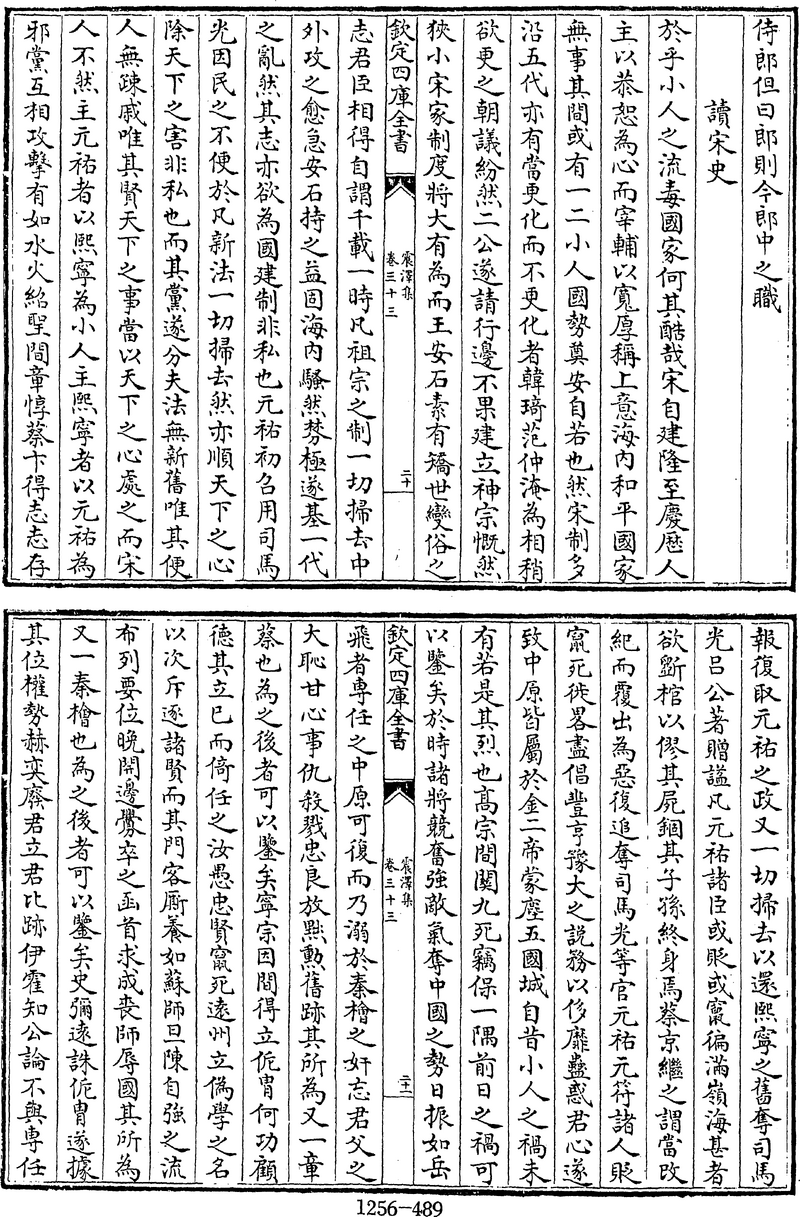 侍郎但曰郎則今郎中之職
讀宋史
於乎小人之流毒國家何其酷哉宋自建隆至慶厯人
主以恭恕為心而宰輔以寛厚稱上意海内和平國家
無事其間或有一二小人國勢奠安自若也然宋制多
沿五代亦有當更化而不更化者韓琦范仲淹為相稍
欲更之朝議紛然二公遂請行邊不果建立神宗慨然
狹小宋家制度將大有為而王安石素有矯世變俗之
欽定四庫全書
震澤集
卷三十三
二十
志君臣相得自謂千載一時凡祖宗之制一切掃去中
外攻之愈急安石持之益固海内騷然棼極遂基一代
之亂然其志亦欲為國建制非私也元祐初召用司馬
光因民之不便於凡新法一切掃去然亦順天下之心
除天下之害非私也而其黨遂分夫法無新舊唯其便
人無疎戚唯其賢天下之事當以天下之心處之而宋
人不然主元祐者以熙寧為小人主熙寧者以元祐為
邪黨互相攻擊有如水火紹聖間章惇蔡卞得志志存
報復取元祐之政又一切掃去以還熙寧之舊奪司馬
光吕公著贈諡凡元祐諸臣或貶或竄徧滿嶺海甚者
欲斵棺以僇其屍錮其子孫終身焉蔡京繼之謂當改
紀而覆出為惡復追奪司馬光等官元祐元符諸人貶
竄死徙畧盡倡豐亨豫大之説務以侈靡蠱惑君心遂
致中原皆屬於金二帝蒙塵五國城自昔小人之禍未
有若是其烈也髙宗間關九死竊保一隅前日之禍可
以鑒矣於時諸將競奮強敵氣奪中國之勢日振如岳
欽定四庫全書
震澤集
卷三十三
二十一
飛者専任之中原可復而乃溺於秦檜之奸忘君父之
大恥甘心事仇殺戮忠良放黜勲舊跡其所為又一章
蔡也為之後者可以鑒矣寧宗因間得立侂胄何功顧
徳其立已而倚任之汝愚忠賢竄死遠州立偽學之名
以次斥逐諸賢而其門客厮養如蘇師旦陳自強之流
布列要位晚開邊釁卒之函首求成喪師辱國其所為
又一秦檜也為之後者可以鑒矣史彌遠誅侂胄遂據
其位權勢赫奕廢君立君比跡伊霍知公論不與専任
1256-489